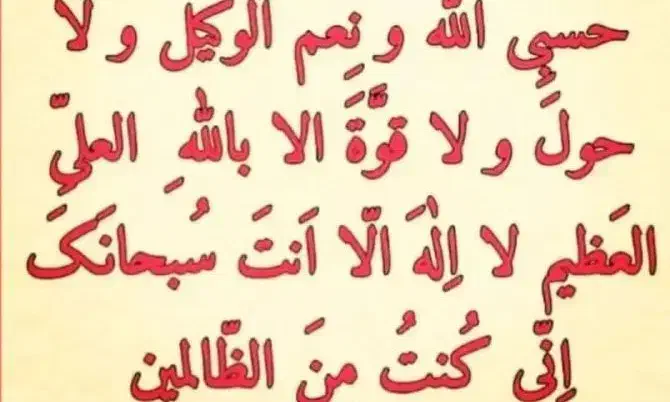 حسبِي الله و نِعم الوکیل و لا
حولَ و لا قوَّةَ الا بالله العليِّ
العَظیمِ لا اِلٰهَ الّا اَنتَ سُبحانَکَ
اِنِّی کُنتُ مِنَ الظّالمین